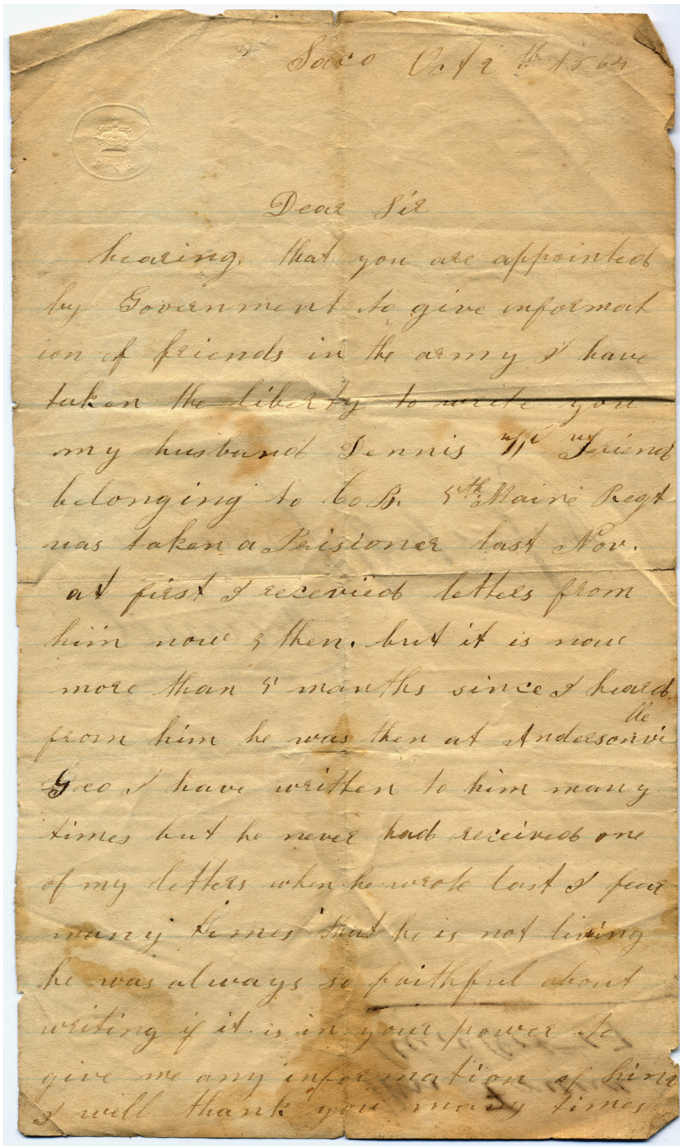 Saco Oct 9th 1864
Dear Sir
hearing. that you are appointed
by Government to give informat
ion of friends in the army I have
taken the liberty to write you
my husband Dennis Friend
belonging to Co B. 5th Maine Regt
was taken a Prisioner last Nov.
at first I recevied letters from
him now & then. but it is now
more than 5 months since I heard
from him he was then at Andersonvi
lle
Geo I have written to him many
times but he never had received one
of my letters when he wrote last I fear
many times that he is not living
he was always so faithful about
writing if it is in your power to
give me any information of him
I will thank you many times